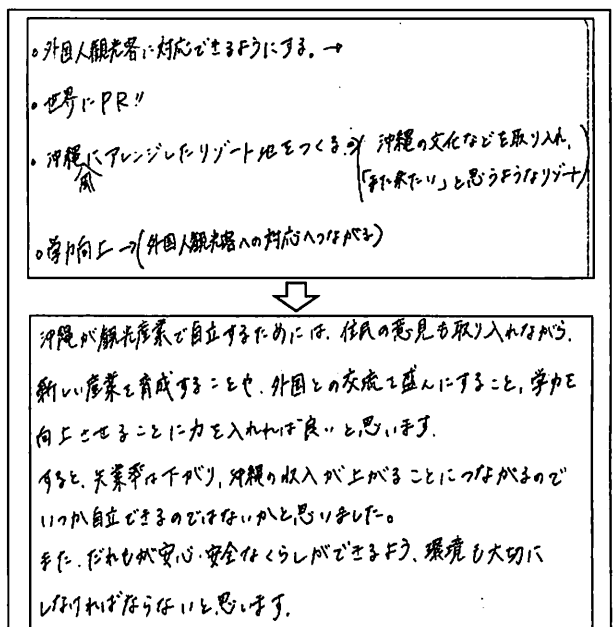 ・外国人観光客に対応できるようにする。→
・世界にPR!!
・沖縄風にアレンジしたリゾート地をつくる。⇒(沖縄の文化などを取り入れ、
「また来たい」と思うようなリゾート)
・学力向上→(外国人観光客への対応へつながる)
沖縄が観光産業で自立するためには、住民の意見も取り入れながら、
新しい産業を育成することや、外国との交流を盛んにすること、学力を
向上させることに力を入れれば良いと思います。
すると、失業率は下がり、沖縄の収入が上がることにつながるので
いつか自立できるのではないかと思いました。
また、だれもが安心・安全なくらしができるよう、環境も大切に
しなければならないと思います。